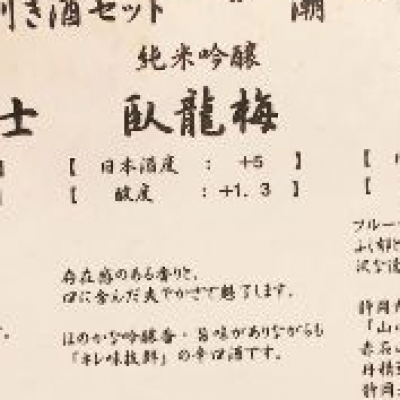 利き酒セット
潮
純米吟醸
士
臥龍梅
【 日本酒度 : +5 】
【 酸度 : +1.3 】
存在感のある香りと、
口に含んだ爽やかさで魅了します。
ほのかな吟醸香・旨味がありながらも
「キレ味抜群」の辛口酒です。
フルー
静岡
「山
赤石山
丹精
静岡